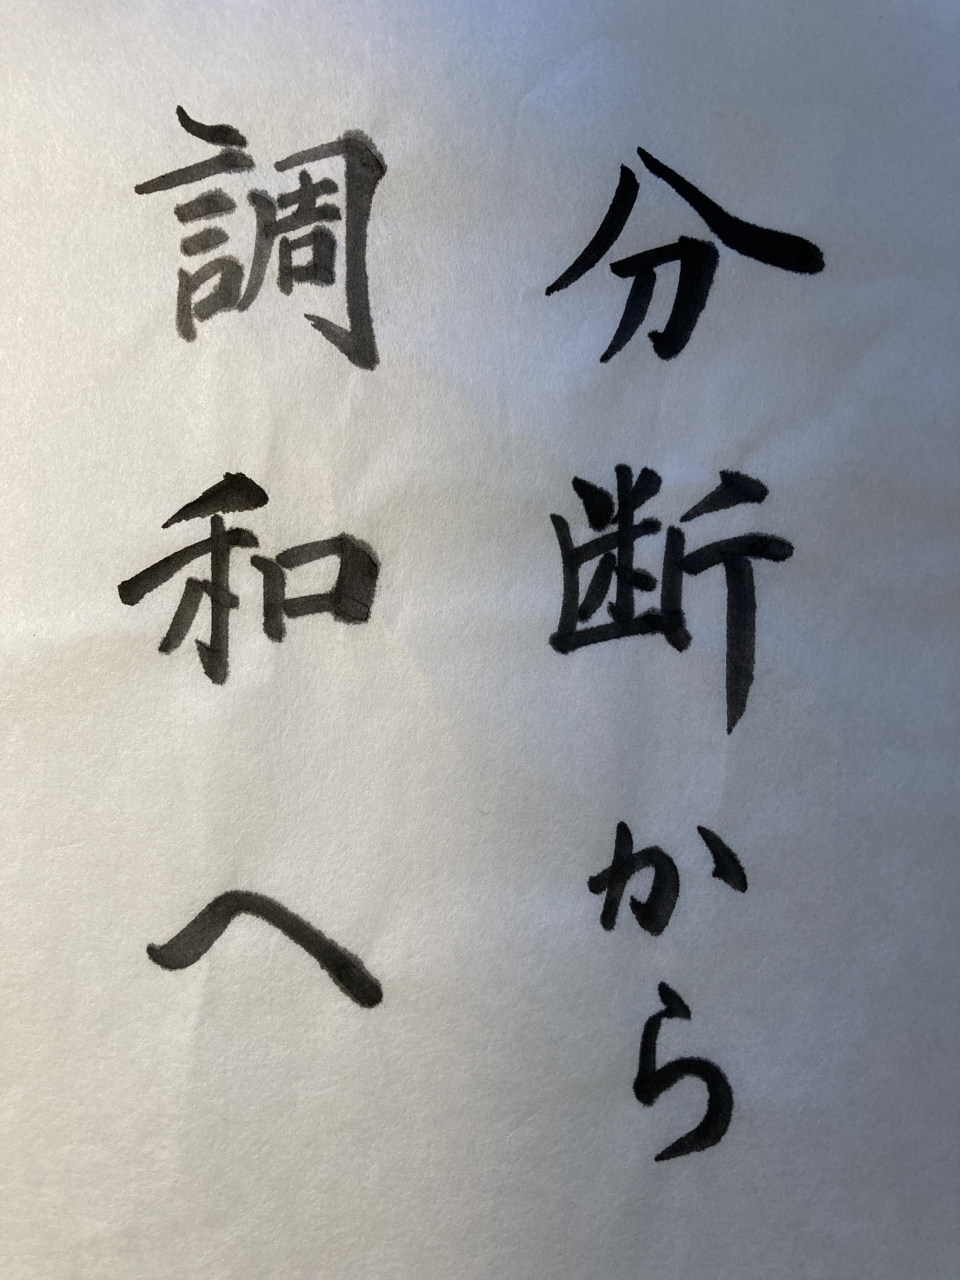 分断から
調和へ